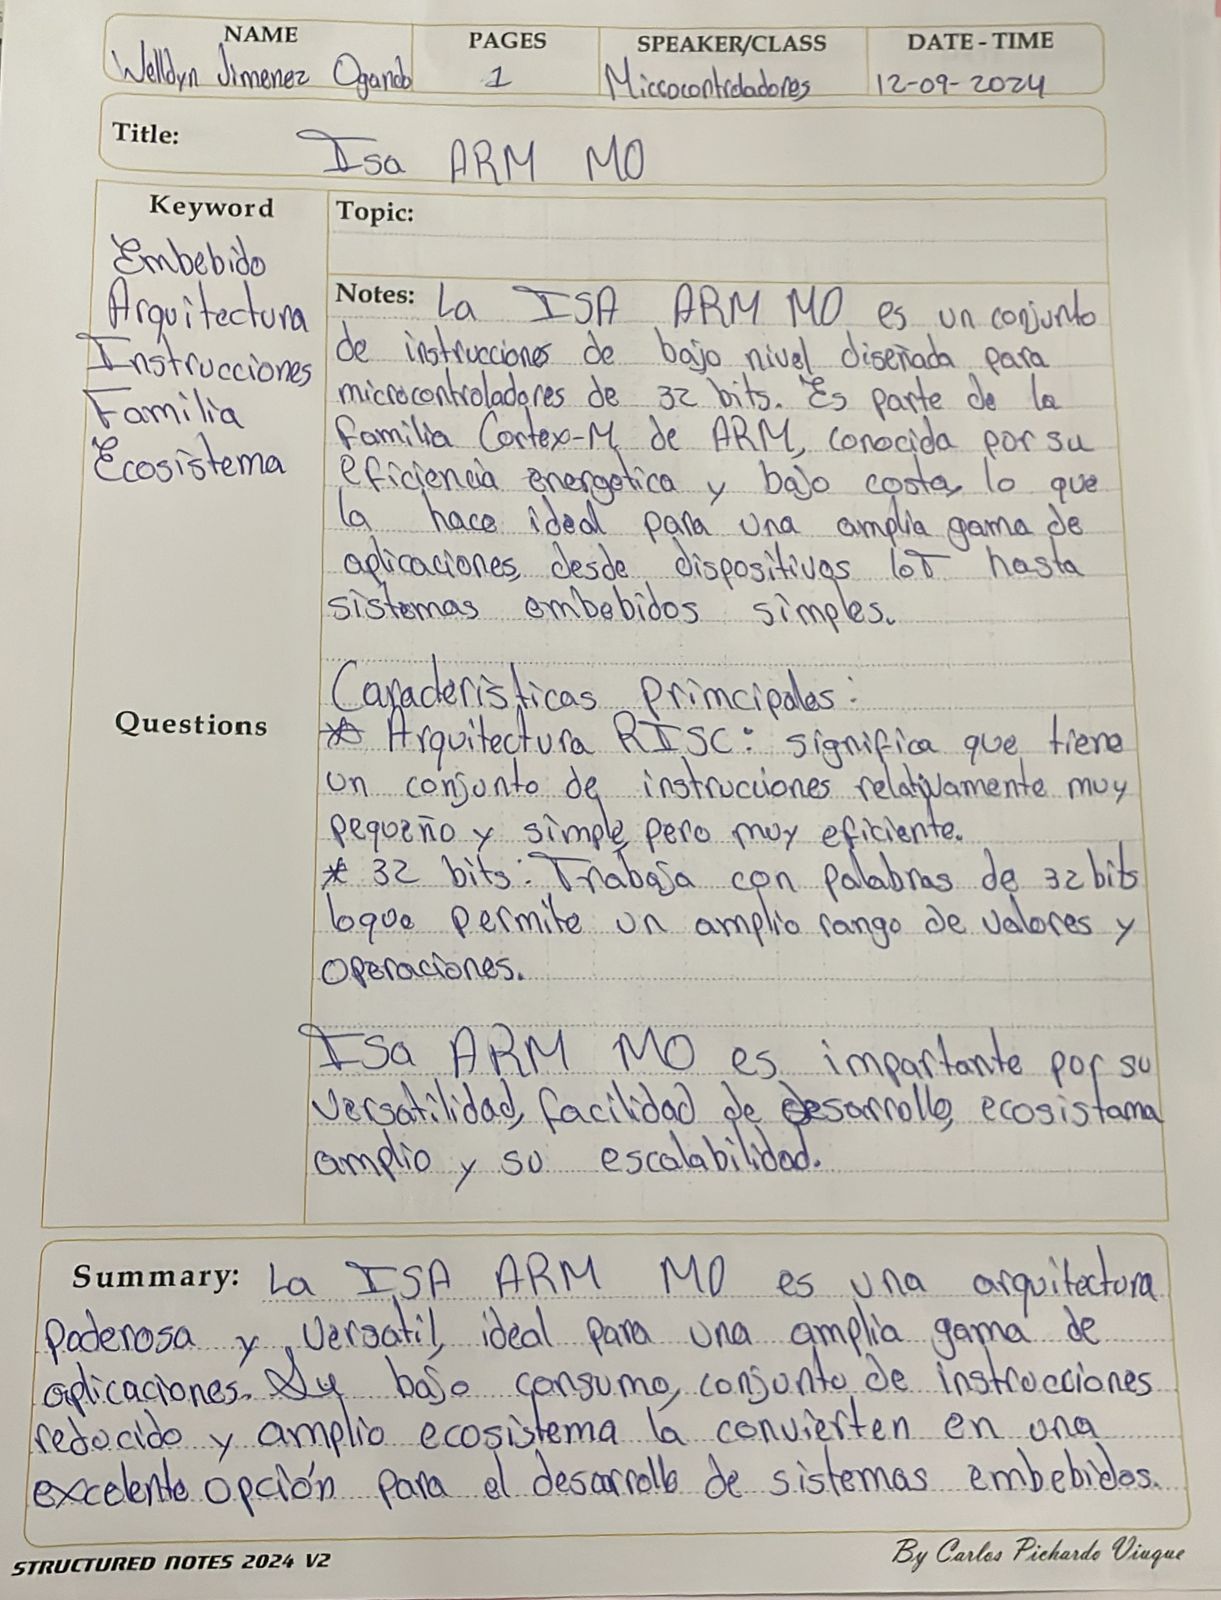 NAME
Welldyn Jimenez Ogando
PAGES
1
SPEAKER/CLASS
Microcontroladores
DATE - TIME
12-09-2024
Title:
Isa ARM M0
Keyword
Embebido
Arquitectura
Instrucciones
Familia
Ecosistema
Questions
Topic:
Notes: La ISA ARM M0 es un conjunto
de instrucciones de bajo nivel diseñada para
microcontroladores de 32 bits. Es parte de la
familia Cortex-M de ARM, conocida por su
eficiencia energetica y bajo costo, lo que
la hace ideal para una amplia gama de
aplicaciones, desde dispositivos IoT hasta
sistemas embebidos simples.
Caracteristicas principales:
* Arquitectura RISC: significa que tiene
un conjunto de instrucciones relativamente muy
pequeño y simple, pero muy eficiente.
* 32 bits: Trabaja con palabras de 32 bits
lo que permite un amplio rango de valores y
operaciones.
Isa ARM M0 es importante por su
versatilidad, facilidad de desarrollo, ecosistama
amplio y su escalabilidad.
Summary: La ISA ARM M0 es una arquitectura
poderosa y versatil, ideal para una amplia gama de
aplicaciones. Su bajo consumo, conjunto de instrucciones
reducido y amplio ecosistema la convierten en una
excelente opción para el desarrollo de sistemas embebidos.
STRUCTURED NOTES 2024 V2
By Carlos Pichardo Viuque